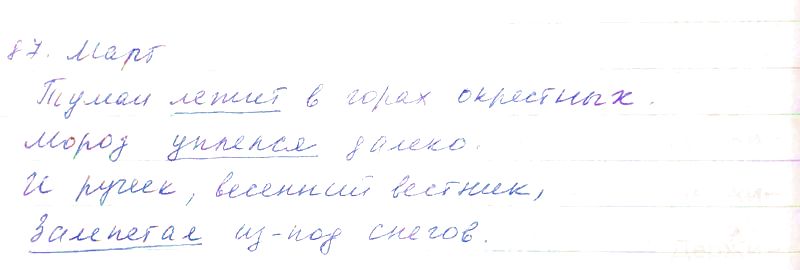 87. Март
Туман лежит в горах окрестных.
Мороз уплелся далеко.
И ручеек, весенний вестник,
Залепетал из-под снегов.